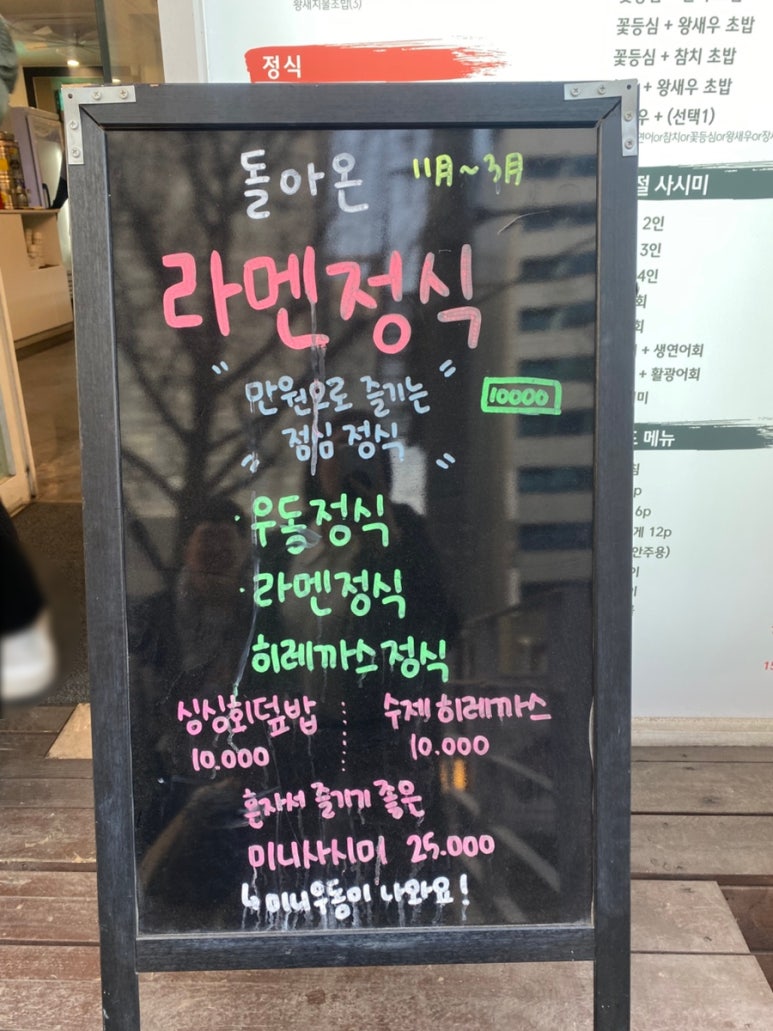 왕새치물초밥(3)
정식
꽃등심 + 왕새우 초밥
꽃등심 + 참치 초밥
+ 왕새우 초밥
우 + (선택1)
연어or참치or꽃등심or왕새우or장새
절 사시미
2인
3인
4인
회
회
+ 생연어회
+ 활광어회
미
드 메뉴
6p
게 12p
안주용)
돌아온 11月~3月
라멘정식
"만원으로 즐기는 10000
점심 정식"
·우동정식
·라멘정식
히레까스정식
싱싱회덮밥 수제 히레까스
10.000 10.000
혼자서 즐기기 좋은
미니사시미 25.000
↳ 미니우동이 나와요!